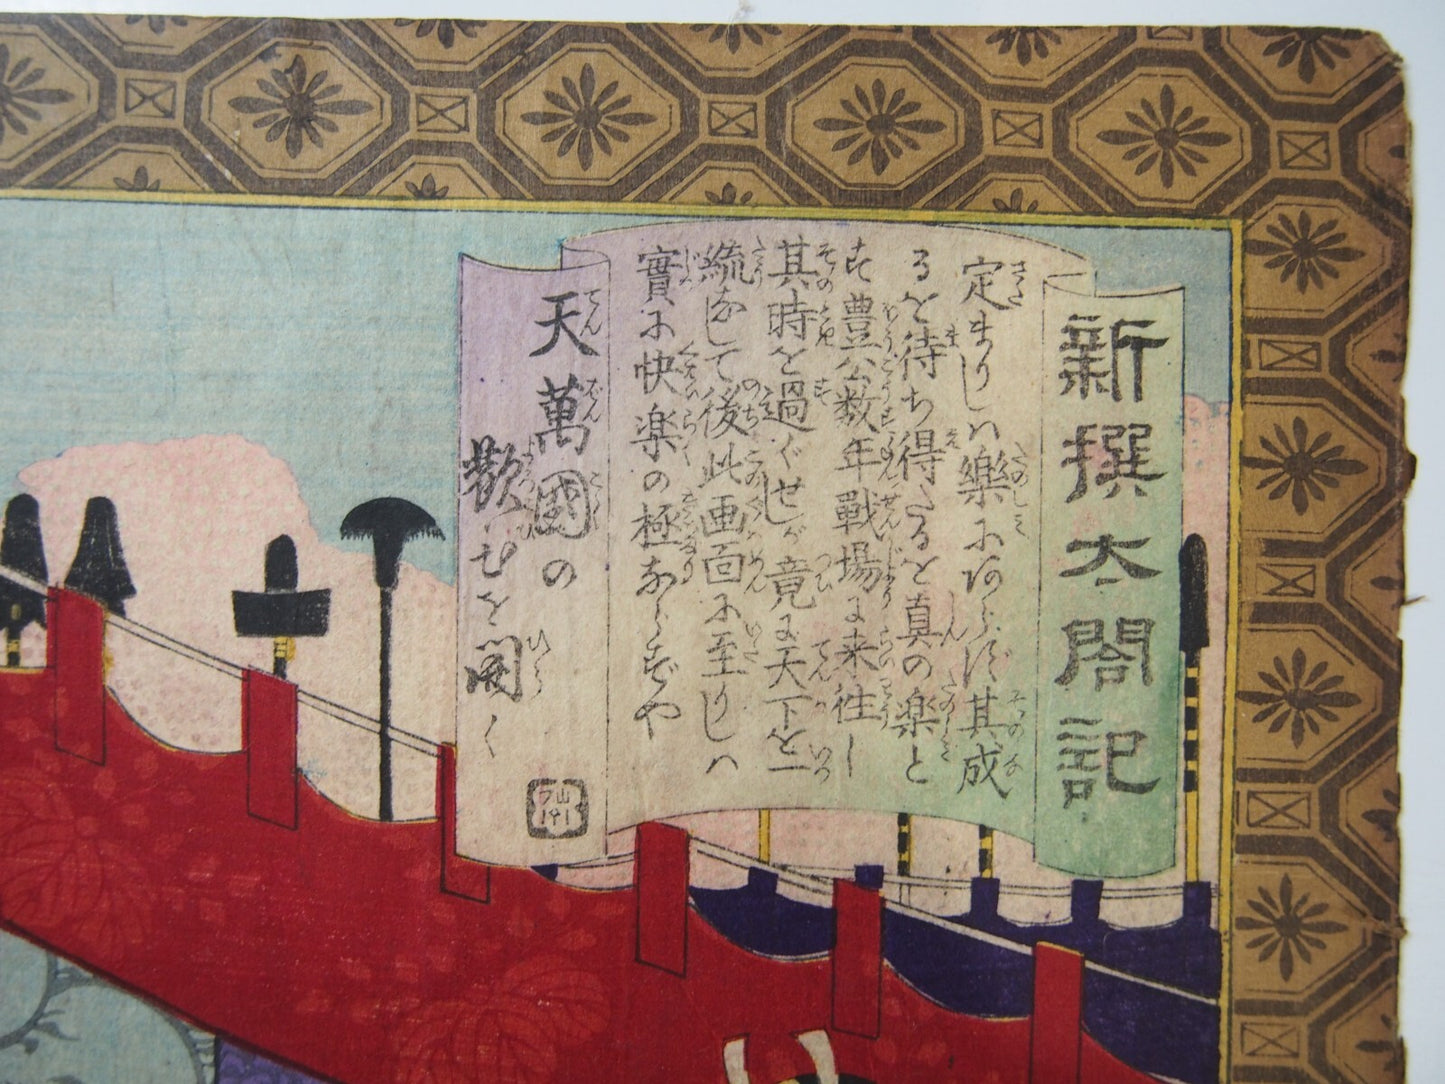 新撰太閤記
定まりし樂にあらず其成
るを待ち得たるを真の楽と
す豊公数年戰場に来往し
其時を過ぐせしが竟に天下を一
統なして後此画面に至りしハ
實に快楽の極ならずや
天萬國の
歡びを開く